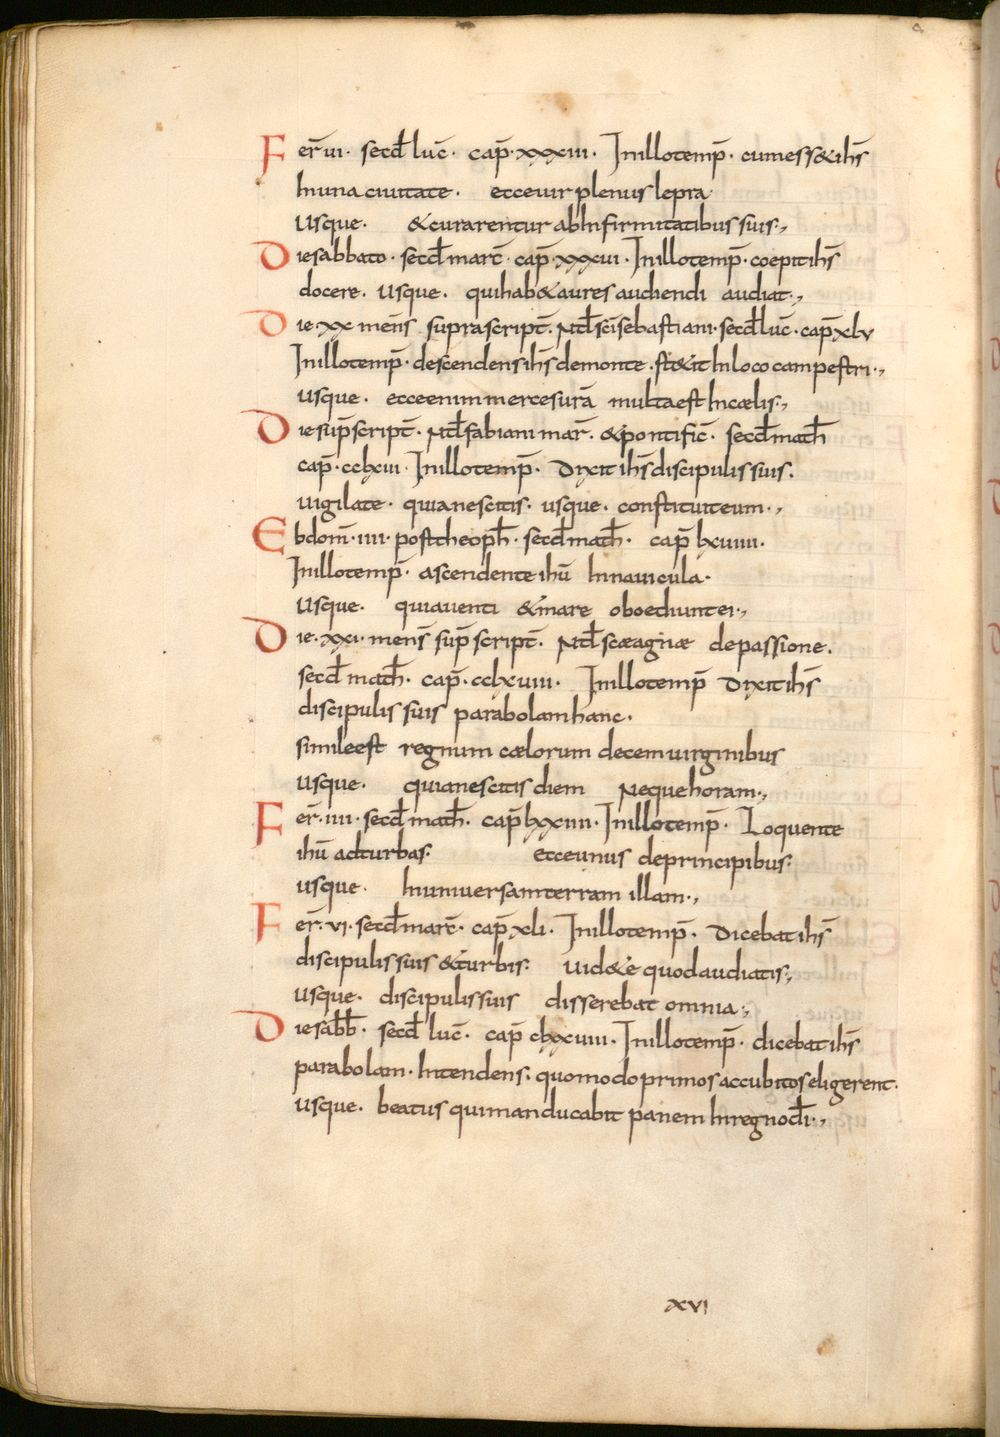 Fer̄ vi. secd̄ luc̄. cap̄. xxxiii. In illo temp̄. cum ess& ih̄s
In una ciuitate. ecce uir plenus lepra
usque. & curarentur ab Infirmitatibus suis.,
Die sabbato. secd̄ marc̄. cap̄. xxxvi. In illo temp̄. coepit ih̄s
docere. usque. qui hab& aures audiendi audiat.,
Die. xx mens̄ suprascript̄. Nt̄l sc̄i sebastiani. secd̄ luc̄. cap̄ xlv
In illo temp̄. descendens ih̄s de monte. st&it In loco campestri.,
usque. ecce enim merces ur̄a multa est In cælis.,
Die sup̄script̄. Nt̄l fabiani mar̄. & pontific̄. secd̄ math̄
cap̄. cclxiii. In illo temp̄. Dixit ih̄s discipulis suis.
uigilate. quia nescitis. usque. constituit eum.,
Ebdom̄. iiii. post theoph̄. secd̄ math̄. cap̄ lxviiii.
In illo temp̄. ascendente ih̄u In nauicula.
usque. quia uenti & mare oboediunt ei.,
Die. xxi. mens̄ sup̄script̄. Nt̄l sc̄æ agnæ de passione.
secd̄ math̄. cap̄. cclxviii. In illo temp̄ Dixit ih̄s
discipulis suis parabolam hanc.
simile est regnum cælorum decem uirginibus
usque. quia nescitis diem Neque horam.,
Fer̄. iiii. secd̄ math̄. cap̄ lxxiiii. In illo temp̄. Loquente
ih̄u ad turbas. ecce unus de principibus.
usque. In uniuersam terram illam.,
Fer̄. vi. secd̄ marc̄. cap̄ xli. In illo temp̄. Dicebat ih̄s
discipulis suis & turbis. Uid&e quod audiatis.,
usque. discipulis suis disserebat omnia.,
Die sabb̄. secd̄ luc̄. cap̄ clxxviii. In illo temp̄. dicebat ih̄s
parabolam. Intendens. quomodo primos accubitos eligerent.
usque. beatus qui manducabit panem In regno dī.,
xvi